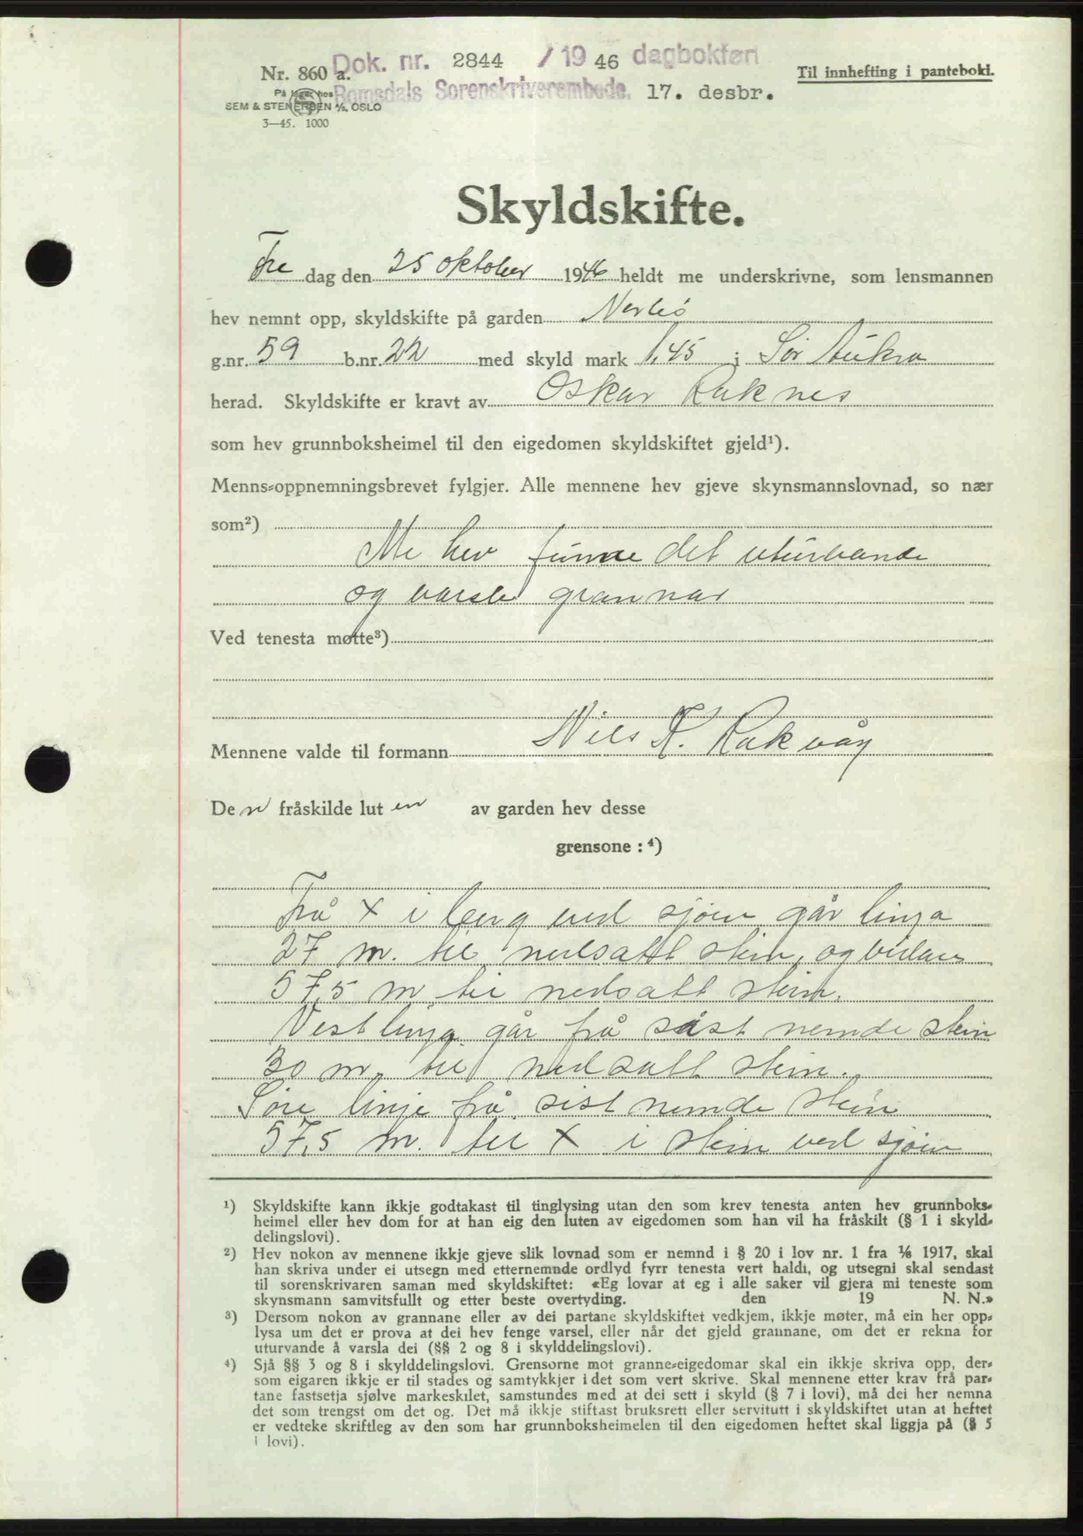 Dok. nr. 2844 / 1946 dagbokført
Nr. 860 a.
Til innhefting i panteboki.
På lager hos
Romsdals Sorenskriverembede. 17. desbr.
SEM & STENERSEN A/S, OSLO
3—45. 1000
Skyldskifte.
Fre dag den 25 oktober 1946 heldt me underskrivne, som lensmannen
hev nemnt opp, skyldskifte på garden Nerbö
g.nr. 59 b.nr. 22 med skyld mark 1,45 i Sör Aukra
herad. Skyldskifte er kravt av Oskar Raknes
som hev grunnboksheimel til den eigedomen skyldskiftet gjeld¹).
Menns-oppnemningsbrevet fylgjer. Alle mennene hev gjeve skynsmannslovnad, so nær
som²)
Me hev funne det uturvande
og varsle grannar
Ved tenesta møtte³)
Mennene valde til formann Nils K. Rakvåg
De n fråskilde lut en av garden hev desse
grensone : ⁴)
Frå X i berg ved sjöen går linja
27 m. til nedsatt stein, og vidare
57,5 m til nedsatt stein.
Vest linja går frå sist nemde stein
30 m. til nedsatt stein.
Söre linje frå sist nemde stein
57,5 m. til X i stein ved sjöen
¹) Skyldskifte kann ikkje godtakast til tinglysing utan den som krev tenesta anten hev grunnboks-
heimel eller hev dom for at han eig den luten av eigedomen som han vil ha fråskilt (§ 1 i skyld-
delingslovi).
²) Hev nokon av mennene ikkje gjeve slik lovnad som er nemnd i § 20 i lov nr. 1 fra 1/6 1917, skal
han skriva under ei utsegn med etternemnde ordlyd fyrr tenesta vert haldi, og utsegni skal sendast
til sorenskrivaren saman med skyldskiftet: «Eg lovar at eg i alle saker vil gjera mi teneste som
skynsmann samvitsfullt og etter beste overtyding. den 19 N. N.»
³) Dersom nokon av grannane eller av dei partane skyldskiftet vedkjem, ikkje møter, må ein her opp-
lysa um det er prova at dei hev fenge varsel, eller når det gjeld grannane, om det er rekna for
uturvande å varsla dei (§§ 2 og 8 i skylddelingslovi).
⁴) Sjå §§ 3 og 8 i skylddelingslovi. Grensorne mot granne-eigedomar skal ein ikkje skriva opp, der-
som eigaren ikkje er til stades og samtykkjer i det som vert skrive. Skal mennene etter krav frå par-
tane fastsetja sjølve markeskilet, samstundes med at dei sett i skyld (§ 7 i lovi), må dei her nemna
det som trengst om det og. Det må ikkje stiftast bruksrett eller servitutt i skyldskiftet utan at heftet
er vedteke skriftleg av den som har grunnboksheimelen til den eigedomen heftet skal liggja på (§ 5
i lovi).